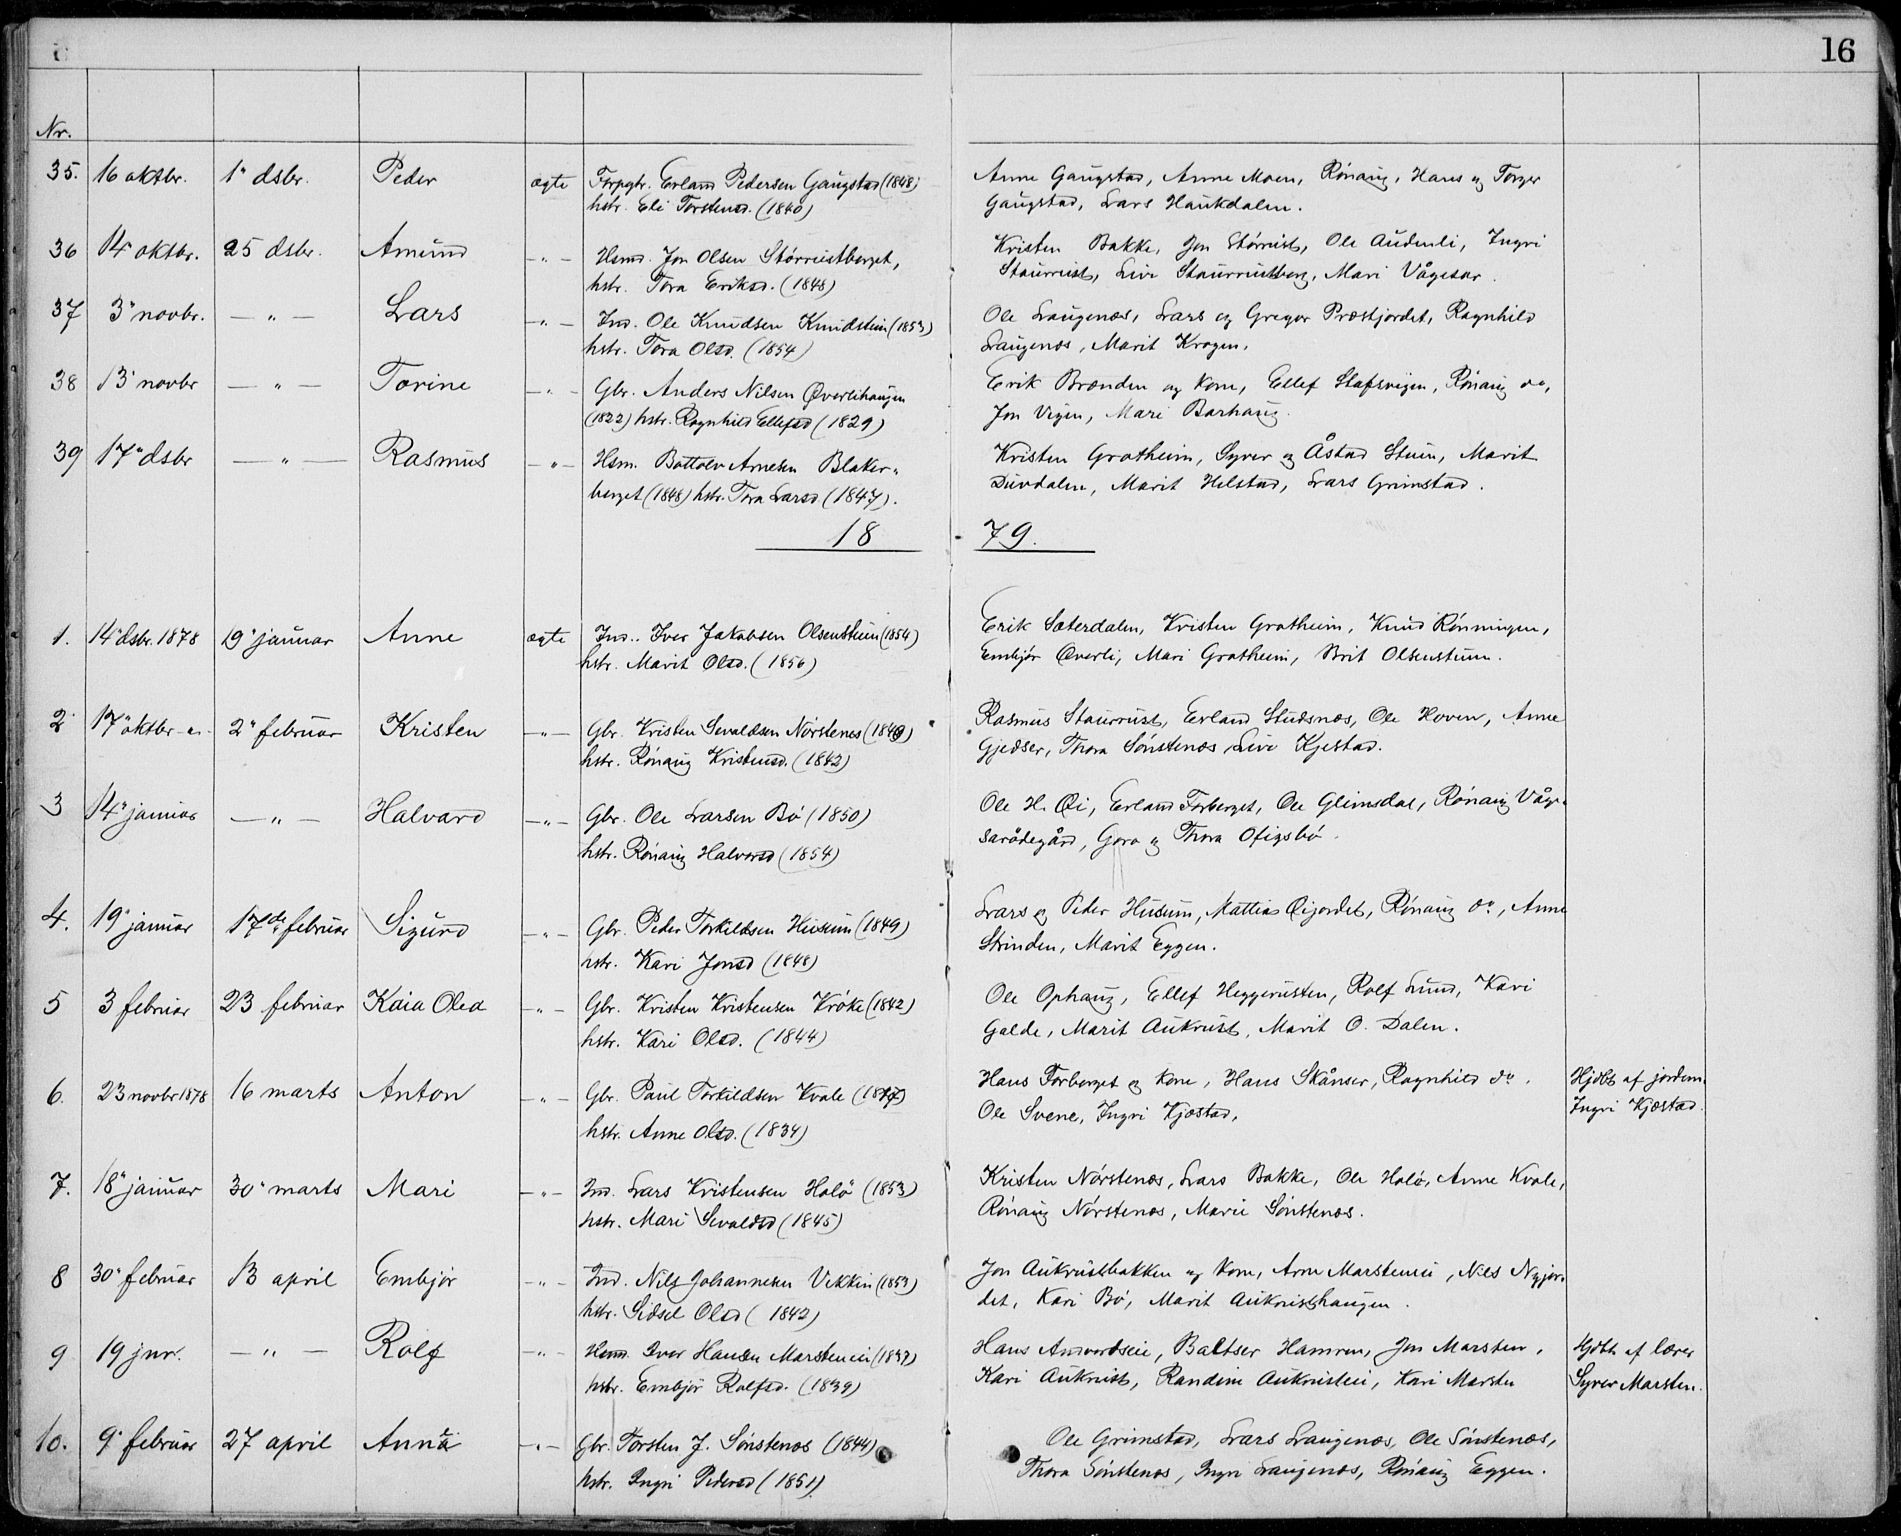 16
Nr.
35. 16 oktbr. 1" dsbr. Peder ægte Forpgtr. Erland Pedersen Gaugstad (1848)
hstr. Eli Torstensd. (1840)
Anne Gaugstad, Anne Moen, Rønaug, Hans og Torger
Gaugstad, Lars Haukdalen.
36 14 oktbr. 25 dsbr. Amund —"— Hsmd. Jon Olsen Størrustberget,
hstr. Tora Eriksd. (1848)
Kristen Bakke, Jon Størrust, Ole Audenli, Ingri
Staurrust, Live Staurrustberg, Mari Vågesar.
37 3" novbr. —"— Lars —"— Ind. Ole Knudsen Knudstuin (1853)
hstr. Tora Olsd. (1854)
Ole Laugenæs, Lars og Gregor Præstjordet, Ragnhild
Laugenæs, Marit Krogen.
38 13" novbr —"— Torine —"— Gbr. Anders Nilsen Øverlihaugen
(1822) hstr. Ragnhild Ellefsd (1829)
Erik Brænden og kone, Ellef Slafsvigen, Rønaug do,
Jon Vigen, Mari Barhaug.
39 17" dsbr —"— Rasmus —"— Hsm. Bottolv Arnesen Blaker-
berget (1848) hstr. Tora Larsd (1847).
Kristen Grotheim, Syver og Åstad Stuen, Marit
Duvdalen, Marit Hilstad, Lars Grimstad.
18 79.
1. 14" dsbr. 1878 19" januar Anne ægte Ind. Iver Jakobsen Olsenstuen (1854)
hstr. Marit Olsd. (1856)
Erik Sæterdalen, Kristen Grotheim, Knud Rønningen,
Embjør Øverli, Mari Grotheim, Brit Olsenstuen.
2 17" oktbr - a. 2" februar Kristen —"— Gbr. Kristen Sevaldsen Nørstenes
hstr. Rønaug Kristensd. (1842)
Rasmus Staurrust, Erland Studsnæs, Ole Hoven, Anne
Gjedser, Thora Sønstenæs, Live Kjestad.
3 14" januar —"— Halvard —"— Gbr. Ole Larsen Bø (1850)
hstr. Rønaug Halvorsd (1854)
Ole H. Øi, Erland Forberget, Ole Glimsdal, Rønaug Våge-
sarødegård, Goro og Thora Ofigsbø.
4. 19" januar 17de februar Sigurd —"— Gbr. Peder Torkildsen Husum (1849)
hstr. Kari Jonsd (1848)
Lars og Peder Husum, Mattias Øijordet, Rønaug do, Anne
Strinden, Marit Eggen.
5 3 februar 23 februar Kaia Olea —"— Gbr. Kristen Kristensen Krøke (1842)
hstr. Kari Olsd. (1844)
Ole Ophaug, Ellef Heggerusten, Rolf Lund, Kari
Galde, Marit Aukrust, Marit O. Dalen.
6. 23 novbr 1878 16 marts Anton —"— Gbr. Paul Torkildsen Kvale
hstr. Anne Olsd. (1834)
Hans Forberget og kone, Hans Skånser, Ragnhild do.
Ole Svene, Ingri Kjæstad,
Hjdbt af jordm.
Ingri Kjæstad.
7. 18" januar 30" marts Mari —"— Ind. Lars Kristensen Holø (1853)
hstr. Mari Sevaldsd (1845)
Kristen Nørstenæs, Lars Bakke, Ole Holø, Anne Kvale,
Rønaug Nørstenæs, Marie Sønstenæs.
8 30" februar 13 april Embjør —"— Ind. Nils Johannesen Vekkin (1853)
hstr. Sidsel Olsd (1842)
Jon Aukrustbakken og kone, Arne Marsteneie, Nils Nyjor-
det, Kari Bø, Marit Aukrusthaugen.
9 19 jnr. —"— Rolf —"— Hsmd. Iver Hansen Marsteneie (1837)
hstr. Embjør Rolfsd. (1839)
Hans Andvordseie, Baltser Hamren, Jon Marsten,
Kari Aukrust, Randine Aukrusteie, Kari Marsten
Hjdbt af lærer
Syver Marsten.
10. 9" februar 27 april Anna —"— Gbr. Torsten J. Sønstenæs (1844)
hstr. Ingri Pedersd (1851)
Ole Grimstad, Lars Laugenæs, Ole Sønstenæs,
Thora Sønstenæs, Ingri Laugenæs, Rønaug Eggen.